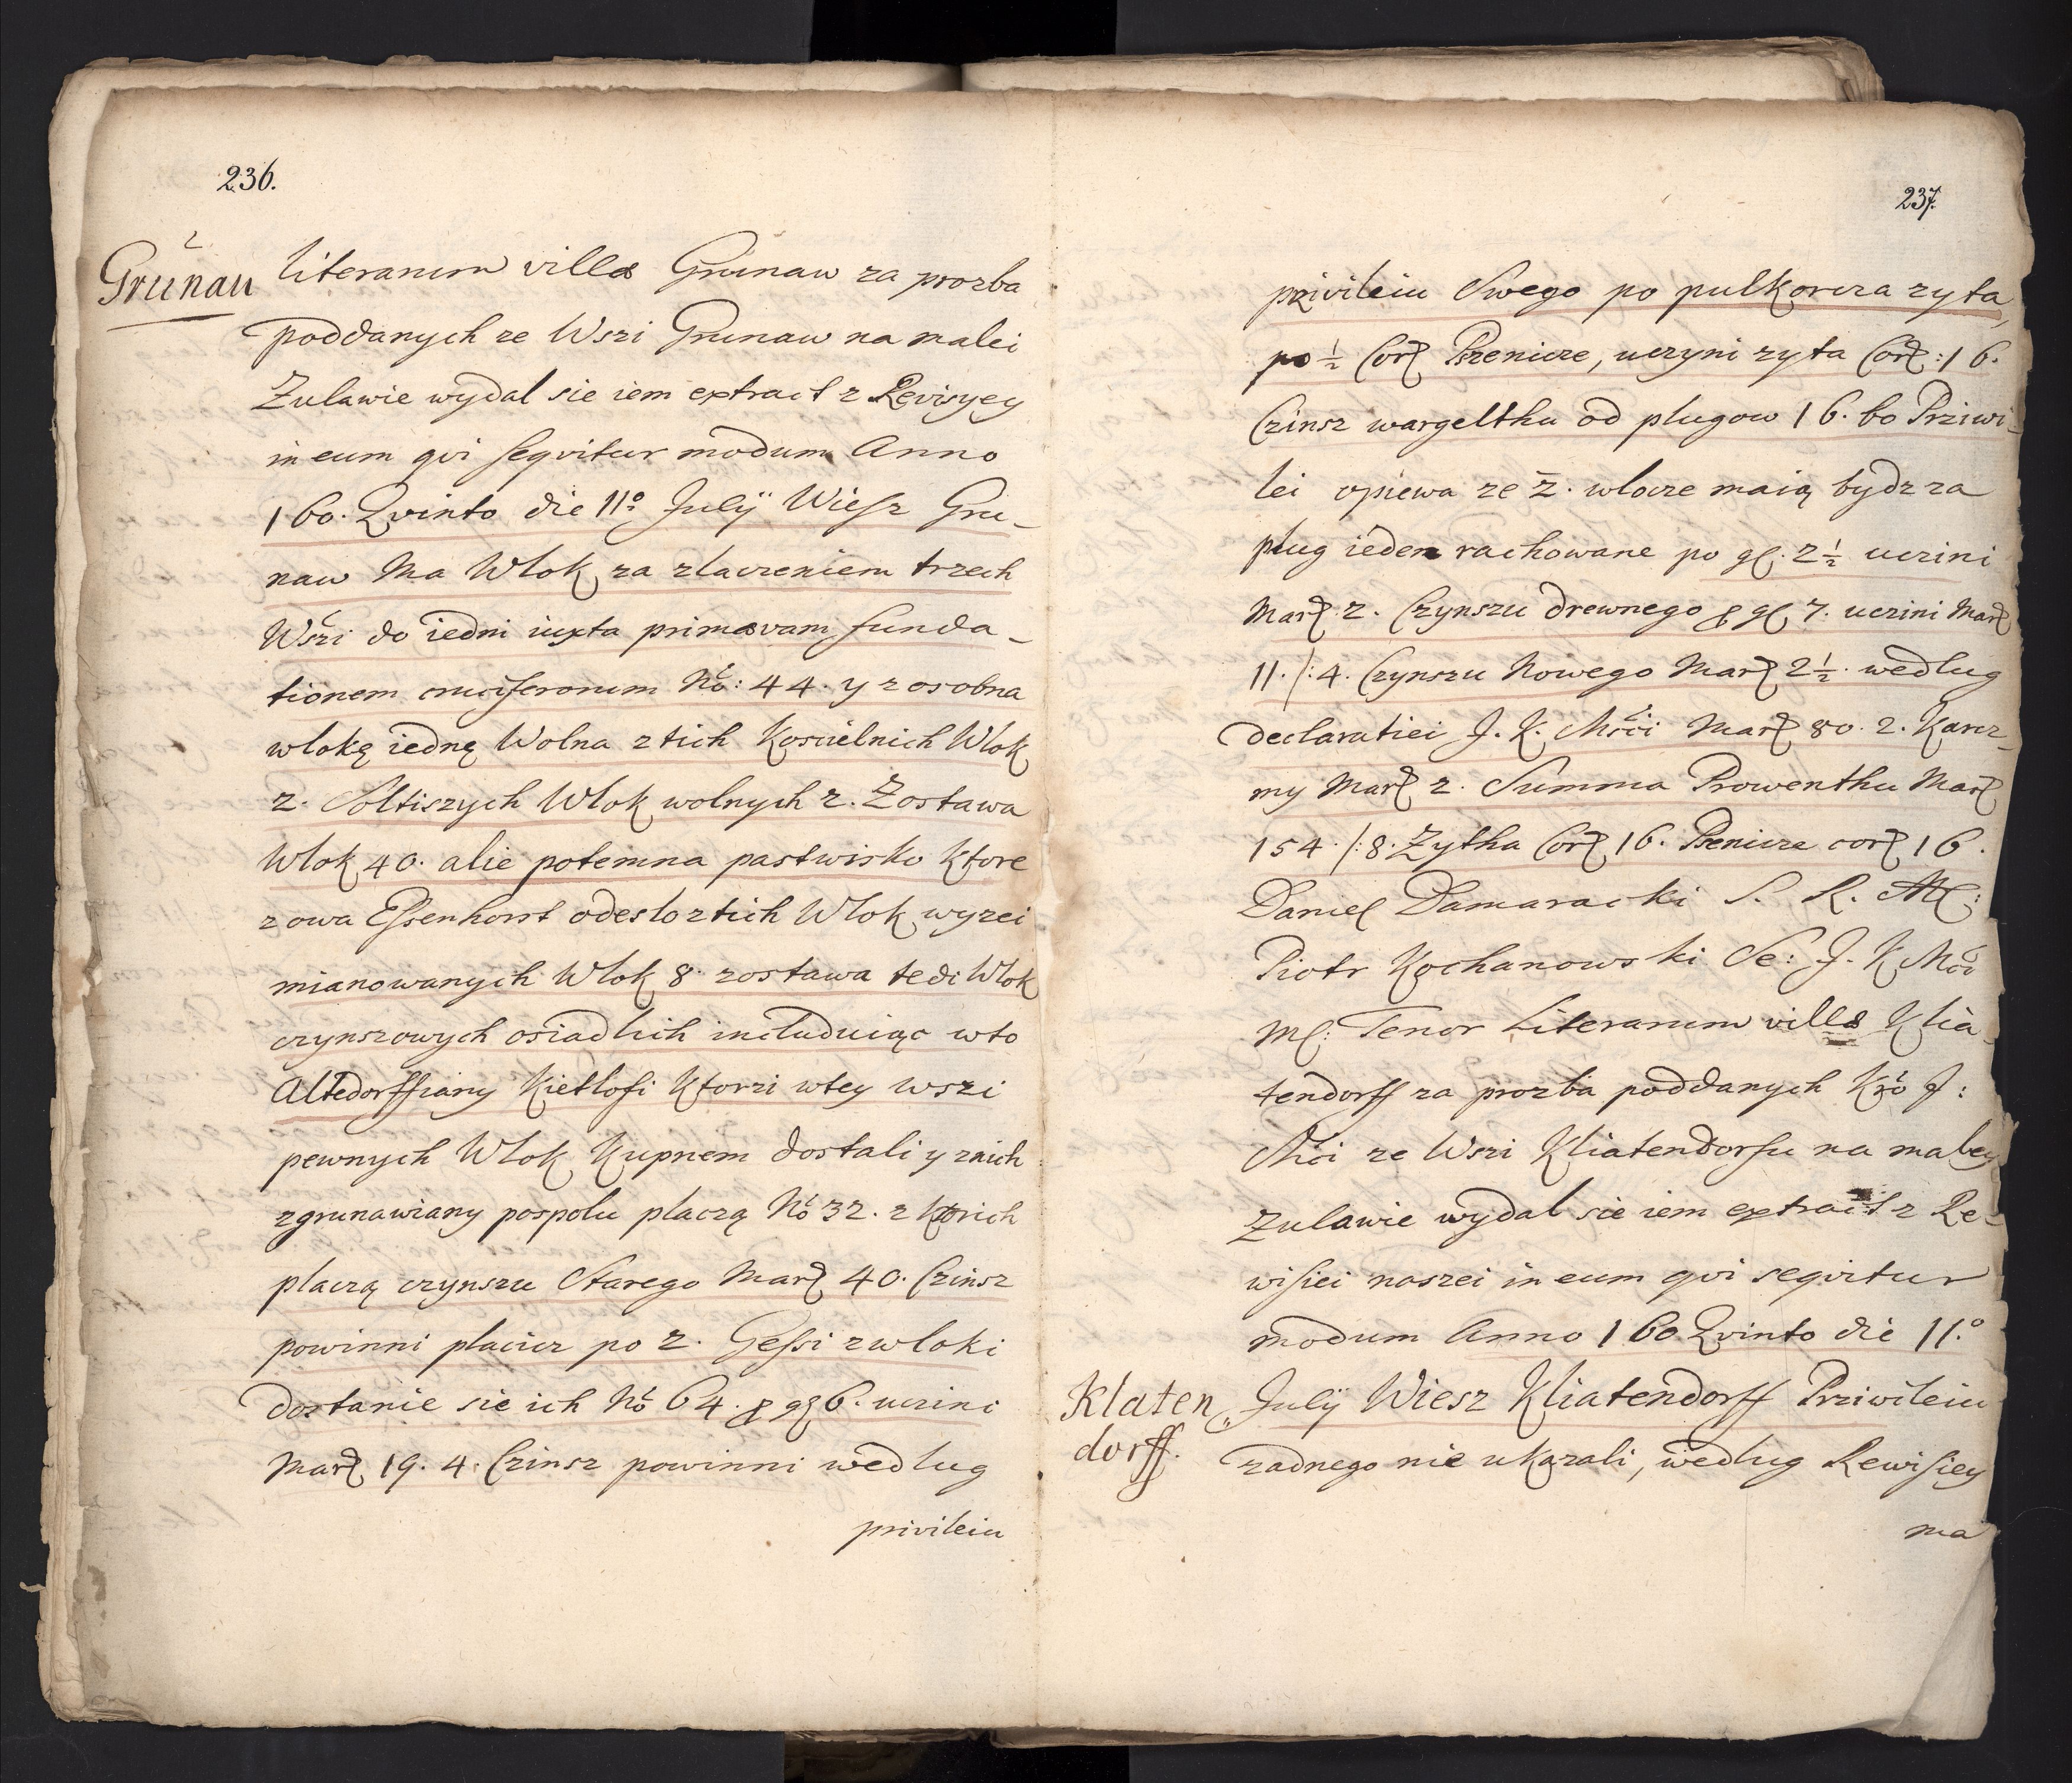 236.
Grünau
literarum villæ Grunaw za prozba
poddanych ze Wszi Grunaw na malei
Zulawie wydal sie iem extract z Revisyey
in eum qvi seqvitur modum Anno
160. Qvinto die 11º July Wiesz Gru-
naw Ma Wlok za zlaczeniem trzech
Wszi do iedni iuxta primævam funda-
tionem cruciferorum No: 44. y z osobna
wlokę iednę Wolna z tich Koscielnich Wlok
2. Soltiszych Wlok wolnych 2. Zostawa
Wlok 40. alie potemna pastwisko ktore
zowa Essenhorst odeslo z tich Wlok wyzei
mianowanych Wlok 8. zostawa tedi Wlok
czynszowych osiadlich includuiąc w to
Altedorffiany Kietlosi Ktorzi wtey wszi
pewnych Wlok Kupnem dostali y znich
zgrunawiany pospolu placzą No 32. z ktorich
placzą czynszu Starego Mar 40. Czinsz
powinni placicz po 2. Gessi zwloki
dostanie sie ich No 64. p gr 6. uczini
Mar 19. 4. Czinsz powinni według
privileiu
237.
privileiu Swego po pulkorcza zyta,
po ½ Cor Pszenicze, uczyni zyta Cor: 16.
Czinsz wargelthu od plugow 16. bo Prziwi-
lei opiewa ze 2. wlocze maią bydz za
plug ieden rachowane po gr. 2½ uczini
Mar 2. Czynszu drewnego p gr 7. uczini Mar
11. /: 4. Czynszu Nowego Mar 2½. według
declaratiei J. K. Mści Mar 80. 2. Karcz-
my Mar 2. Summa Prowenthu Mar
154. /: 8. Zytha Cor 16. Psenicze cor 16.
Daniel Damaracki S. R. M:
Piotr Kochanowski Se: J. K Mci
M: Tenor Literarum villæ Klia-
tendorff za prozba poddanych Kro J:
Mci ze Wszi Kliatendorfu na maley
Zulawie wydal sie iem extract z Re-
wisiei naszei in eum qvi seqvitur
modum Anno 160 Qvinto die 11º
Klaten
dorff.
July Wiesz Kliatendorff Prziwileiu
zadnego nie ukazali, według Rewisiey
ma